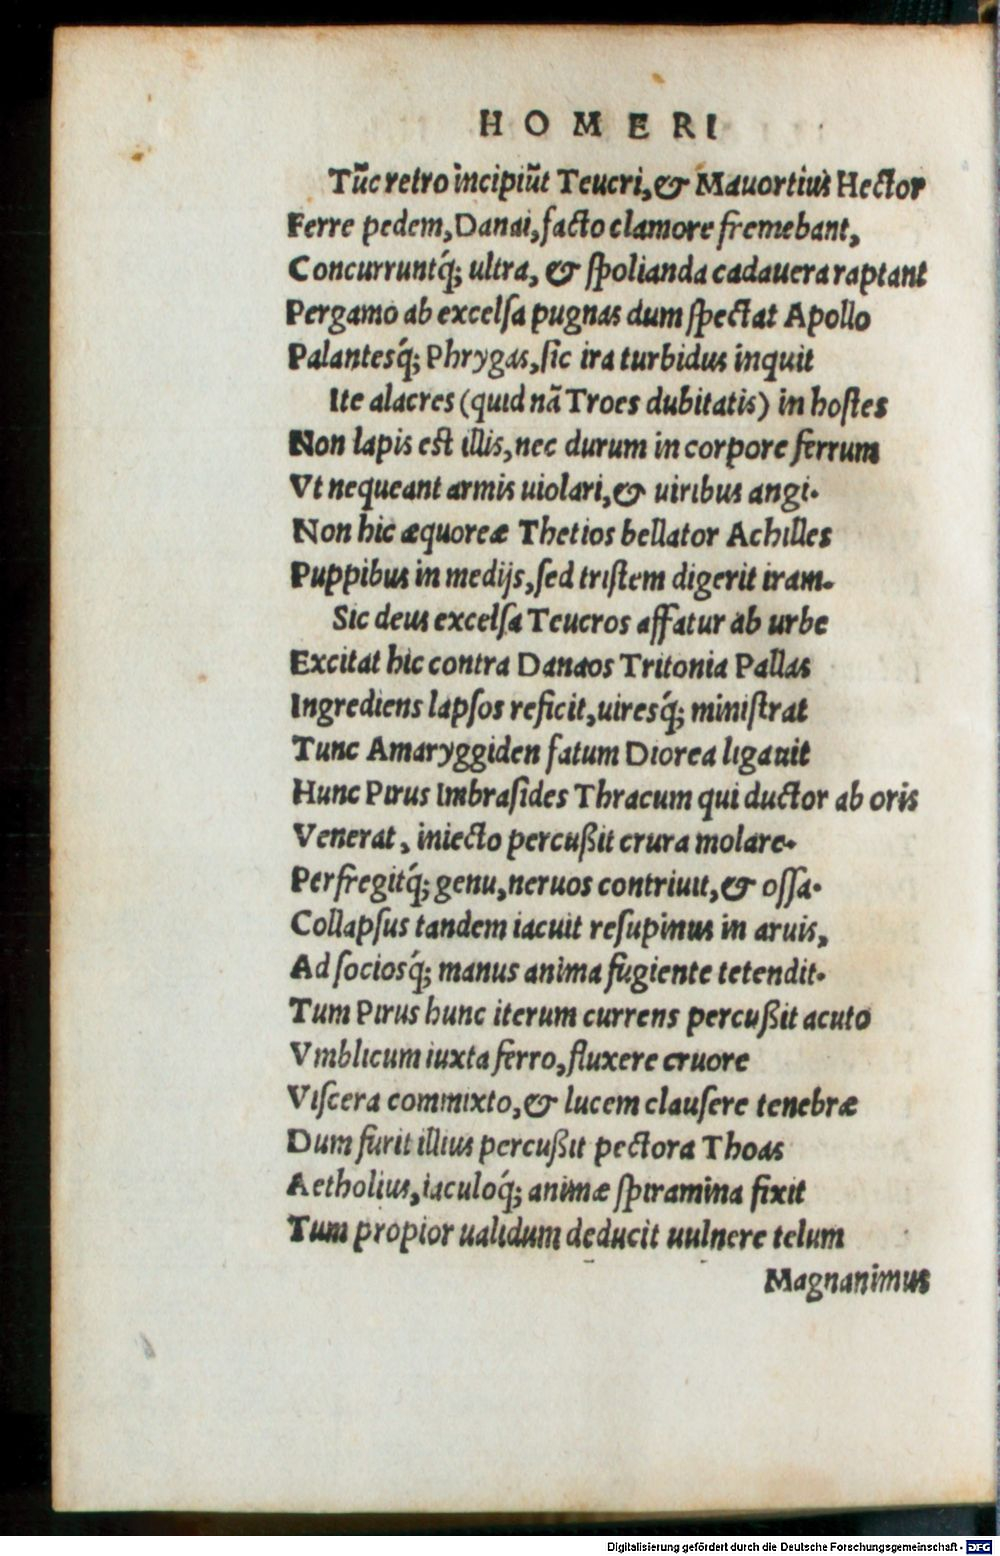 HOMERI
Tūc retro incipiūt Teucri, & Mauortius Hector
Ferre pedem, Danai, facto clamore fremebant,
Concurruntq́; ultra, & ſpolianda cadauera raptant
Pergamo ab excelſa pugnas dum ſpectat Apollo
Palantesq́; Phrygas, ſic ira turbidus inquit
Ite alacres (quid nā Troes dubitatis) in hoſtes
Non lapis eſt illis, nec durum in corpore ferrum
Vt nequeant armis uiolari, & uiribus angi.
Non hic æquoreæ Thetios bellator Achilles
Puppibus in medijs, ſed triſtem digerit iram.
Sic deus excelſa Teucros affatur ab urbe
Excitat hic contra Danaos Tritonia Pallas
Ingrediens lapſos reficit, uiresq́; miniſtrat
Tunc Amaryggiden fatum Diorea ligauit
Hunc Pirus Imbraſides Thracum qui ductor ab oris
Venerat, iniecto percußit crura molare.
Perfregitq́; genu, neruos contriuit, & oſſa.
Collapſus tandem iacuit reſupinus in aruis,
Ad ſociosq́; manus anima fugiente tetendit.
Tum Pirus hunc iterum currens percußit acuto
Vmblicum iuxta ferro, fluxere cruore
Viſcera commixto, & lucem clauſere tenebræ
Dum furit illius percußit pectora Thoas
Aetholius, iaculoq́; animæ ſpiramina fixit
Tum propior ualidum deducit uulnere telum
Magnanimus
Digitalisierung gefördert durch die Deutsche Forschungsgemeinschaft - DFG